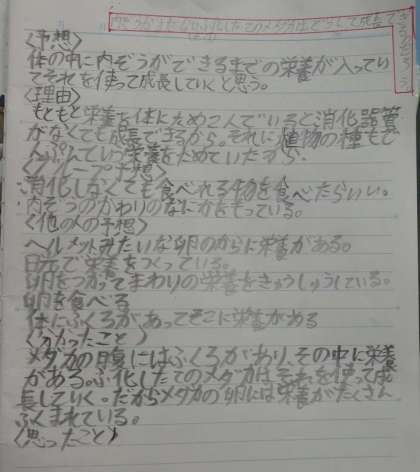 内ぞうがまだないふ化したてのメダカは、どうして成長できるのだろうか
〈予想〉
体の中に内ぞうができるまでの栄養が入ってい
てそれを使って成長していくと思う。
〈理由〉
もともと栄養を体にためこんでいると消化器管
がなくても成長できるから。それに植物の種もで
んぷんていう栄養をためていたから
〈グループ予想〉
・消化しなくても食べれる物を食べたらいい。
・内ぞうのかわりのなにかをもっている。
〈他の人の予想〉
ヘルメットみたいな卵のからに栄養がある。
日光で栄養をつくっている。
卵をつかってまわりの栄養をきゅうしゅうしている。
卵を食べる
体にふくろがあってそこに栄養がある
〈分かったこと〉
メダカの腹にはふくろがあり、その中に栄養
がある。ふ化したてのメダカは、それを使って成
長していく。だからメダカの卵には栄養がたくさん
ふくまれている。
〈思ったこと〉